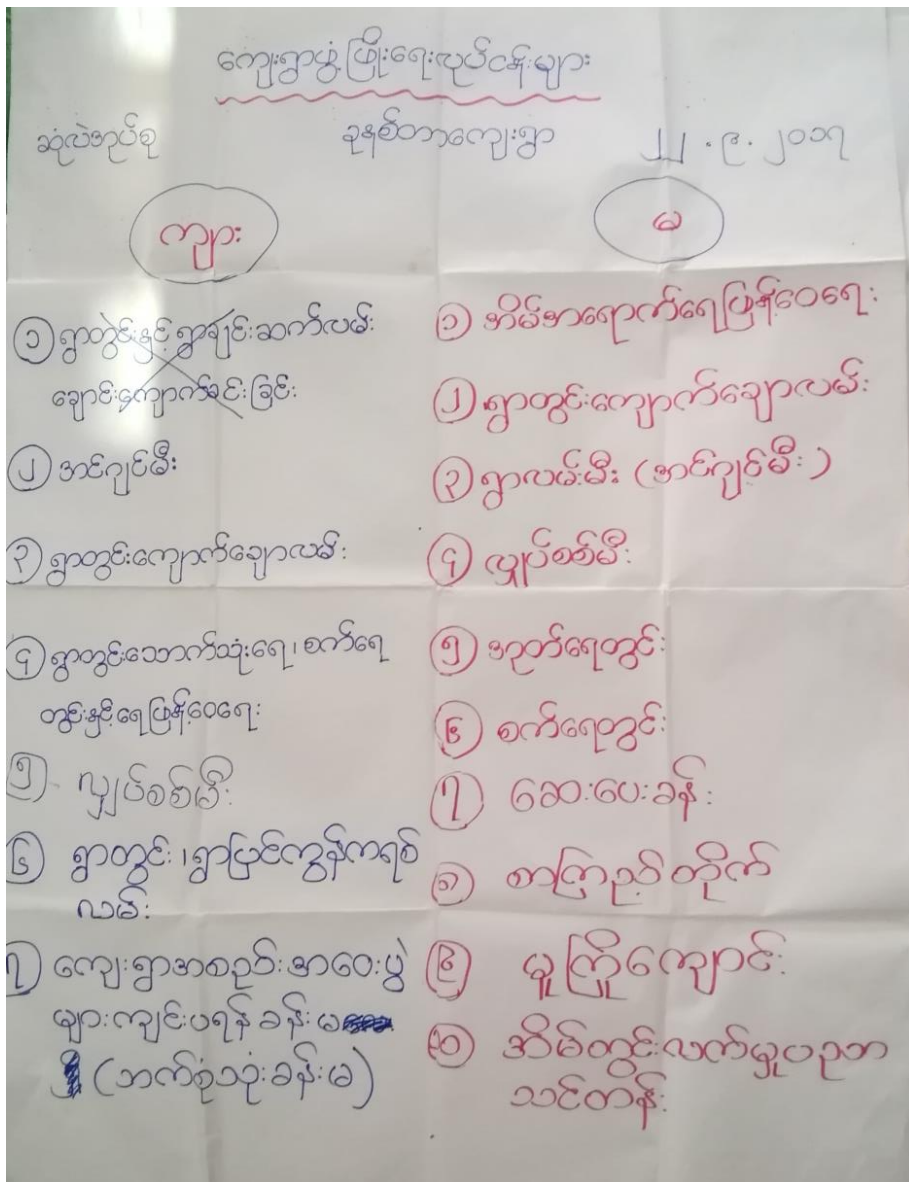 ကျေးရွာဖွံ့ဖြိုးရေးလုပ်ငန်းများ
ဆုံလဲအုပ်စု ခုနစ်တာကျေးရွာ ၂၂.၉.၂၀၁၇
ကျား
၁ ရွာတွင်းနှင့်ရွာချင်းဆက်လမ်း
ချောင်းကျောက်ခင်းခြင်း
၂ အင်ဂျင်မီး
၃ ရွာတွင်းကျောက်ချောလမ်း
၄ ရွာတွင်းသောက်သုံးရေ၊စက်ရေ
တွင်းနှင့်ရေဖြန့်ဝေရေး
၅ လျှပ်စစ်မီး
၆ ရွာတွင်း၊ရွာပြင်ကွန်ကရစ်
လမ်း
၇ ကျေးရွာအစည်းအဝေးပွဲ
များကျင်းပရန်ခန်းမ
(ဘက်စုံသုံးခန်းမ)
မ
၁ အိမ်အရောက်ရေဖြန့်ဝေရေး
၂ ရွာတွင်းကျောက်ချောလမ်း
၃ ရွာလမ်းမီး (အင်ဂျင်မီး)
၄ လျှပ်စစ်မီး
၅ အုတ်ရေတွင်း
၆ စက်ရေတွင်း
၇ ဆေးပေးခန်း
၈ စာကြည့်တိုက်
၉ မူကြိုကျောင်း
၁၀ အိမ်တွင်းလက်မှုပညာ
သင်တန်း